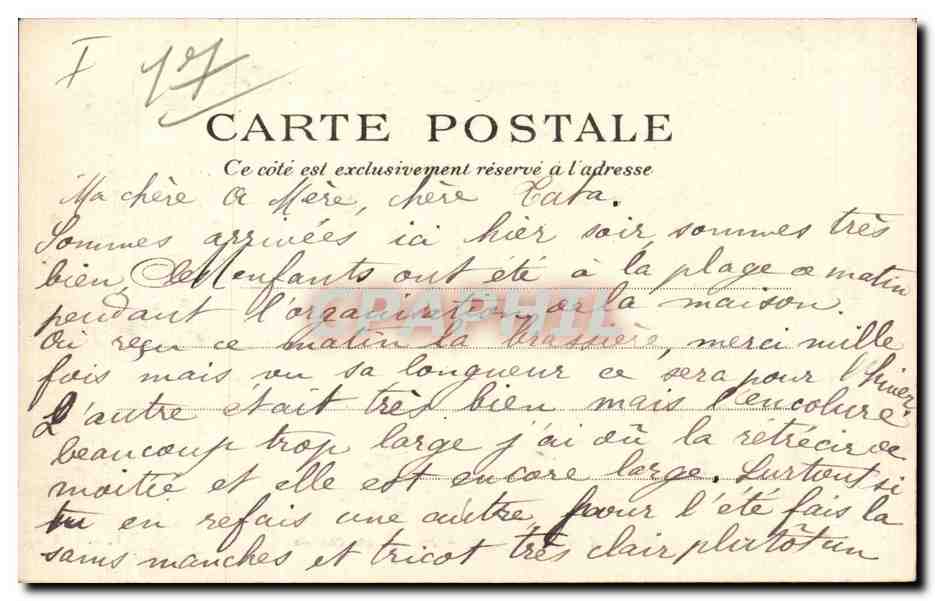 I
CARTE POSTALE
Ce côté est exclusivement réservé à l'adresse
Ma chère Mère, chère Tata.
Sommes arrivées ici hier soir sommes très
bien, enfants ont été à la plage ce matin
pendant l'organisation de la maison.
reçu ce matin la brassière, merci mille
fois mais vu sa longueur ce sera pour l'hiver.
L'autre était très bien mais l'encolure
beaucoup trop large j'ai dû la rétrécir de
moitié et elle est encore large. Surtout si
tu en refais une autre, pour l'été fais la
sans manches et tricot très clair plutôt un
GRAPHIL